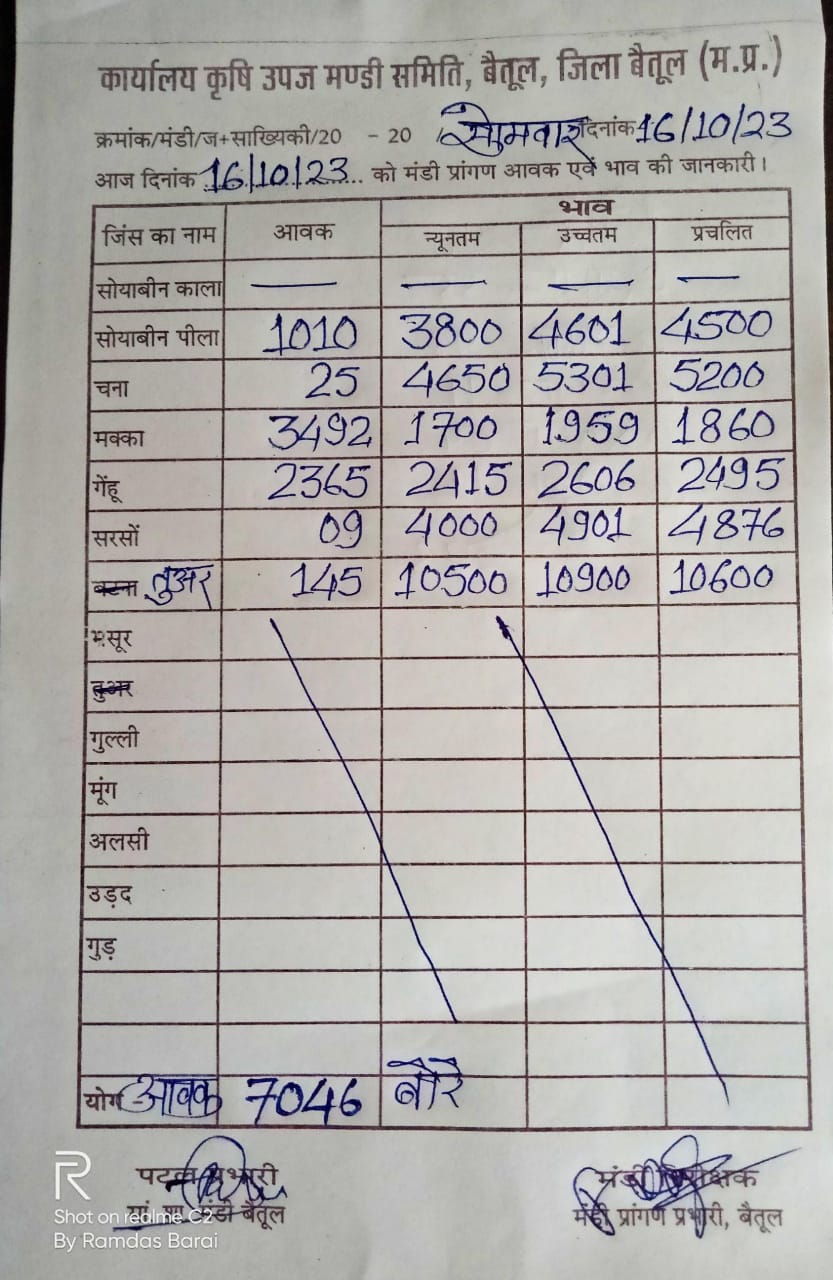 कार्यालय कृषि उपज मण्डी समिति, बैतूल, जिला बैतूल (म.प्र.)
क्रमांक/मंडी/ज+साख्यिकी/20 - 20 / सोमवार दिनांक 16/10/23
आज दिनांक 16/10/23 को मंडी प्रांगण आवक एवं भाव की जानकारी।
जिंस का नाम आवक भाव
न्यूनतम उच्चतम प्रचलित
सोयाबीन काला — — — —
सोयाबीन पीला 1010 3800 4601 4500
चना 25 4650 5301 5200
मक्का 3492 1700 1959 1860
गेंहू 2365 2415 2606 2495
सरसों 09 4000 4901 4876
तुअर 145 10500 10900 10600
मसूर
तुअर
गुल्ली
मूंग
अलसी
उड़द
गुड़
योग आवक 7046 बोरे
प्रभारी
मंडी बैतूल
मंडी निरीक्षक
मंडी प्रांगण प्रभारी, बैतूल
R
Shot on realme C2
By Ramdas Barai